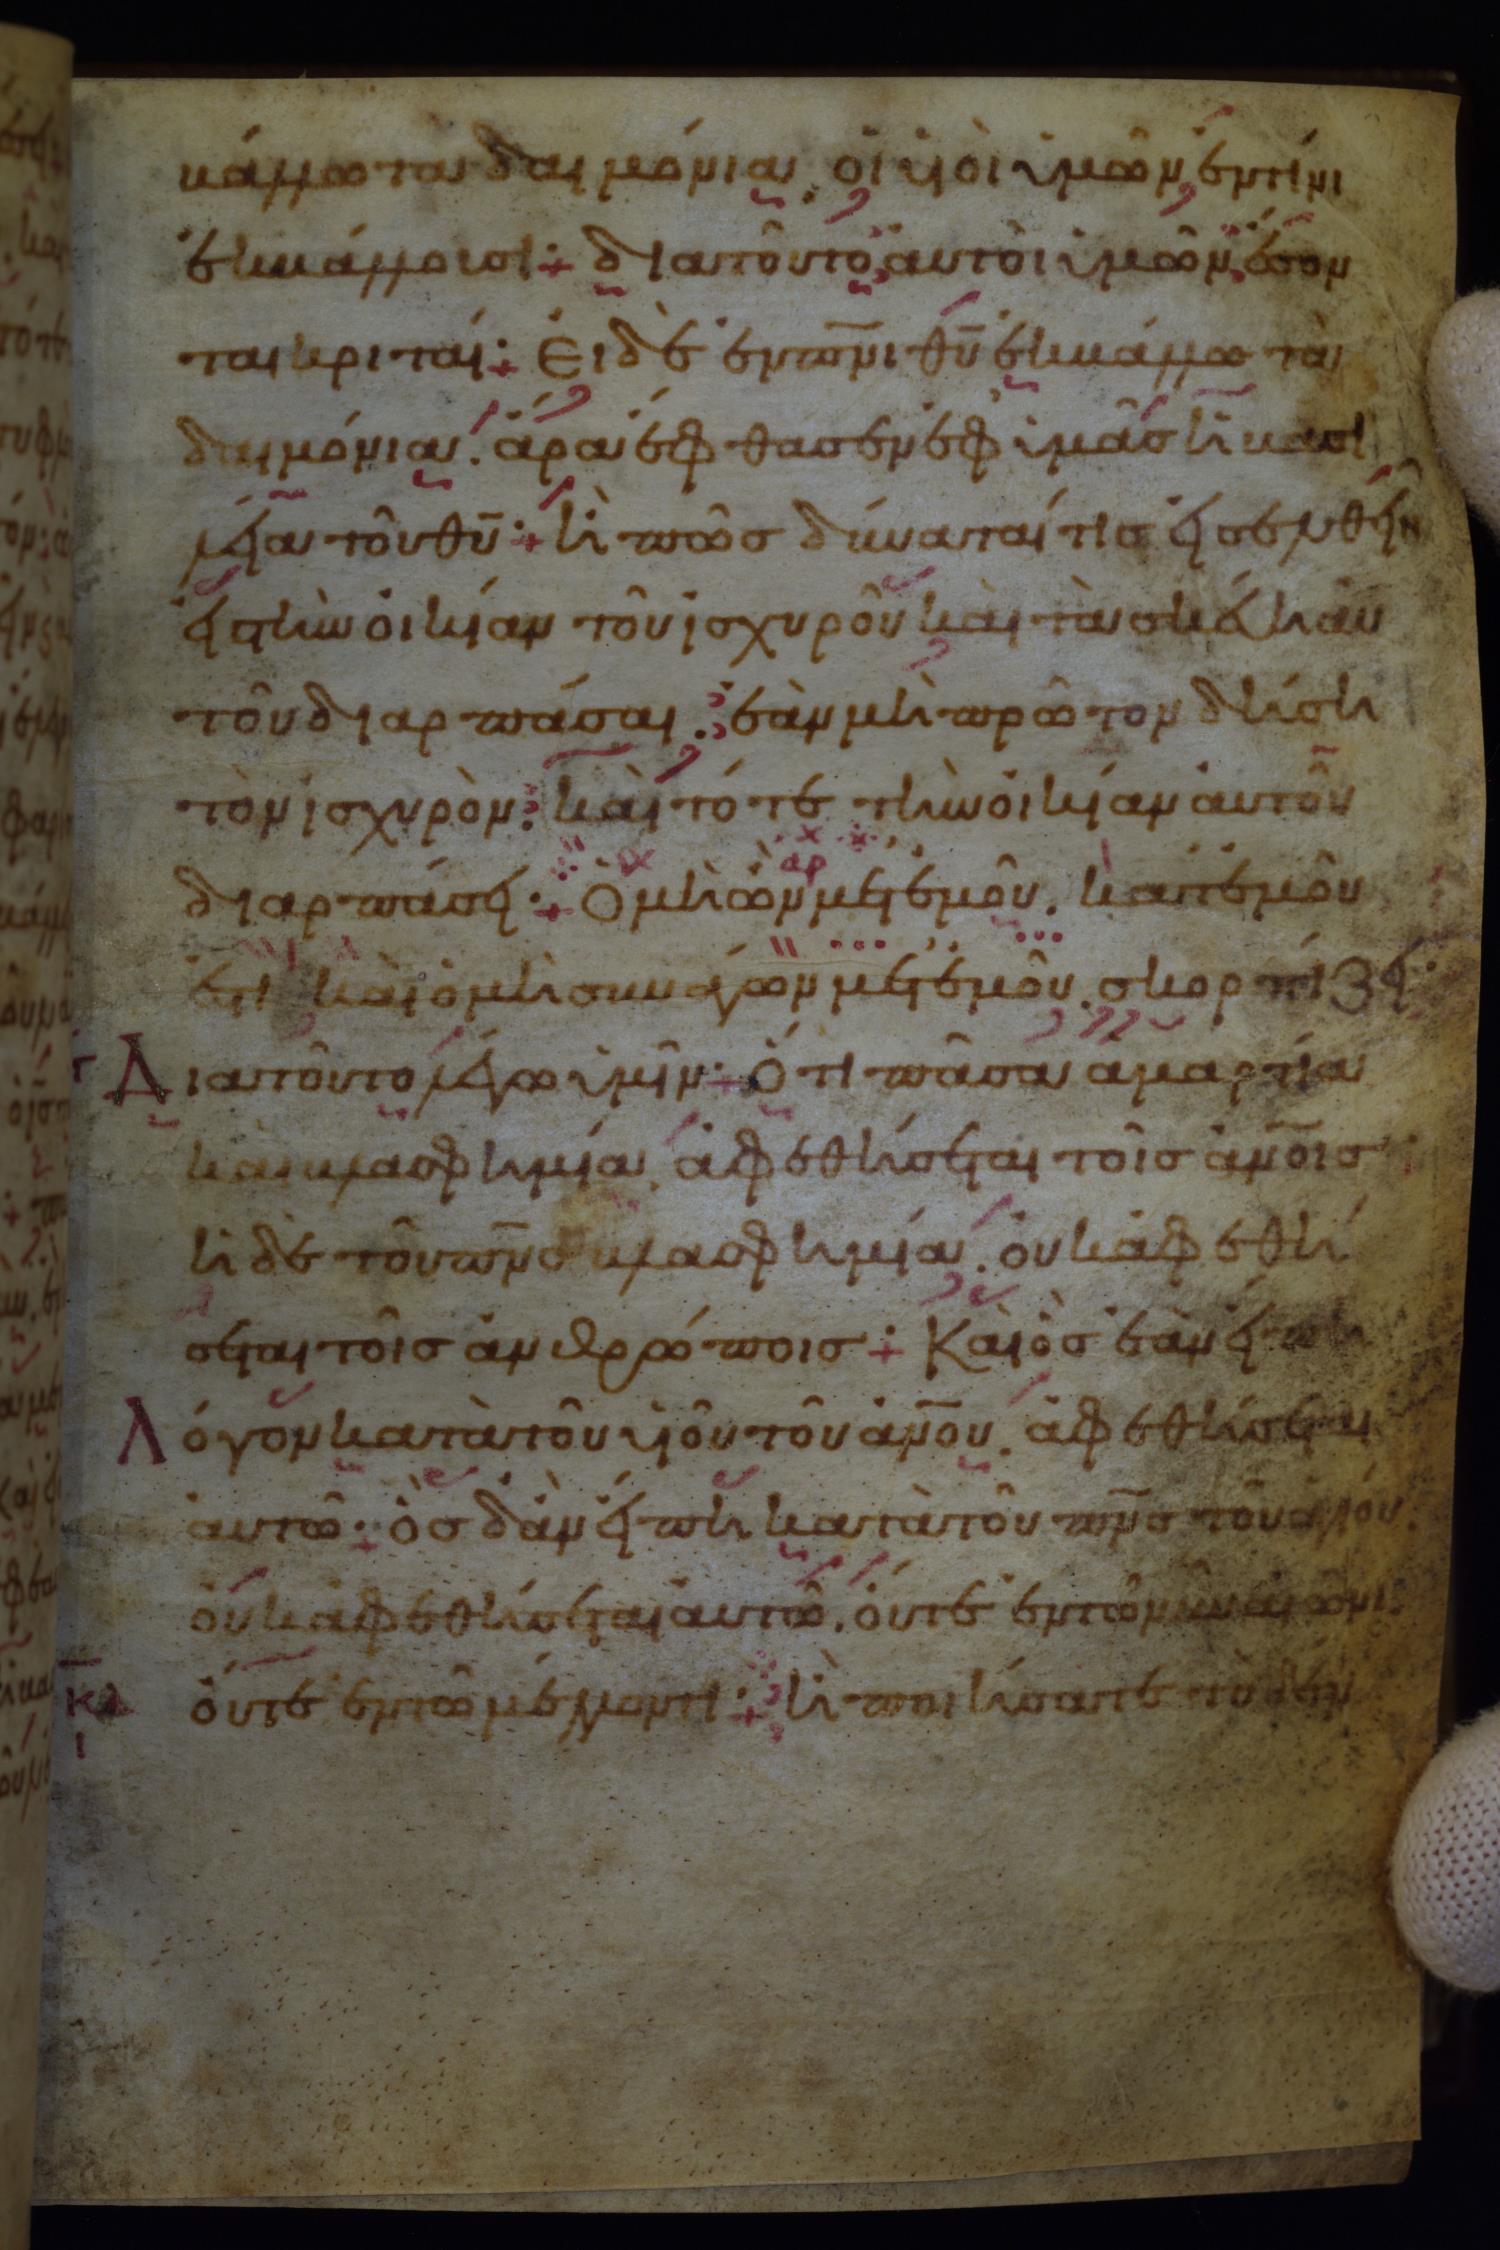 κάλλω τὰ δαιμόνια. οἱ υἱοὶ ὑμῶν ἐν τίνι
ἐκκάλλουσι· διατοῦτο αὐτοὶ ὑμῶν ἔσον
ται κριταί· Εἰ δὲ ἐν πν̅ι θυ̅ ἐκκάλλω τὰ
δαιμόνια. ἄρα ἔφθασεν ἐφ ὑμᾶς ἡ κασι
λεία τοῦ θυ̅· ἢ πῶς δύναταί τις εἰσελθεῖν
εἰς τὴν οἰκίαν τοῦ ἰσχυροῦ καὶ τὰ σκεύη αυ
τοῦ διαρπάσαι. ἐὰν μὴ πρῶτον δήσῃ
τὸν ἰσχυρόν· καὶ τότε τὴν οἰκίαν αὐτοῦ
διαρπάσει· Ὁ μὴ ὢν μετ ἐμοῦ. κατ ἐμοῦ
ἐστι καὶ ὁ μὴ συνάγων μετ ἐμοῦ. σκορπίζει·
Διατοῦτο λέγω ὑμῖν· ὅτι πᾶσα ἁμαρτία
καὶ κλασφημία. ἀφεθήσεται τοῖς αν̅οις
ἡ δὲ τοῦ πν̅ς κλασφημία. οὐκ ἀφεθή
σεται τοῖς ἀνθρώποις· Καὶ ὃς ἐὰν εἴπῃ
Λόγον κατὰ τοῦ υἱοῦ τοῦ αν̅ου. ἀφεθήσεται
αὐτῶ· ὃς δ ἂν εἴπῃ κατὰ τοῦ πν̅ς τοῦ ἁγίου.
οὐκ ἀφεθήσεται αὐτῶ. οὔτε ἐν τῶ νῦν αἰῶνι.
οὔτε ἐν τῶ μέλλοντι· ἢ ποιήσατε τὸ δέν